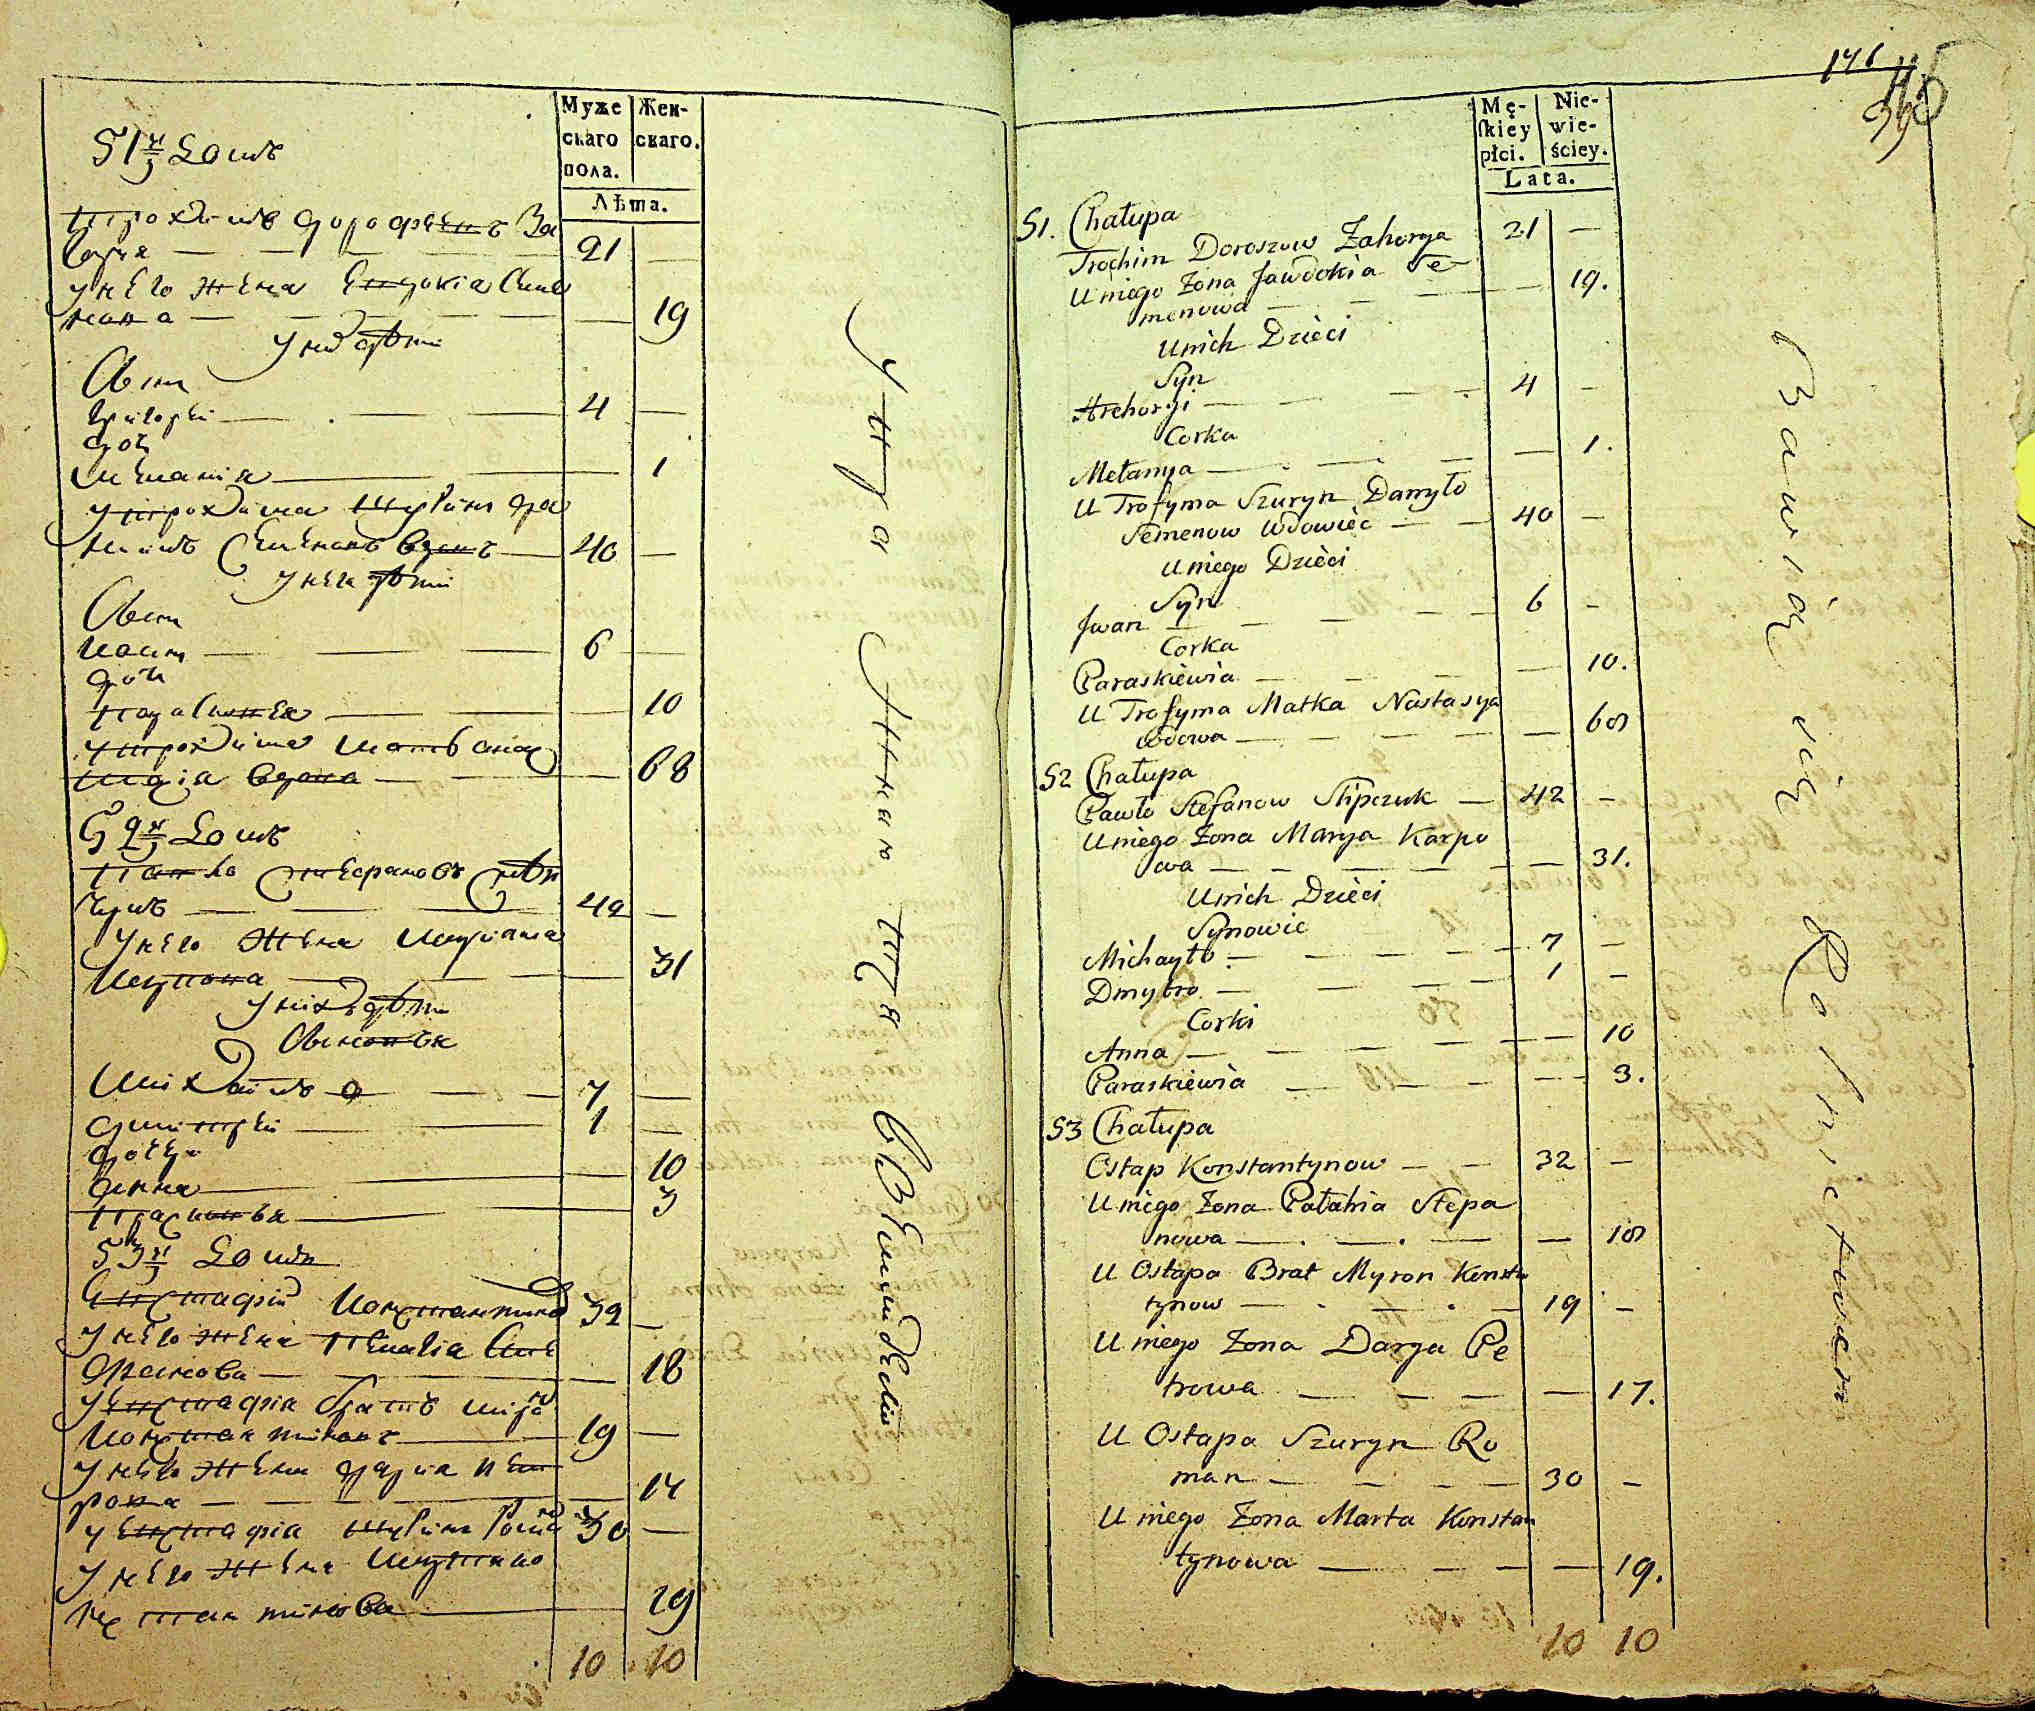 Муже
скаго
пола.
Жен-
скаго.
Лѣта.
51й Домъ
Трохимъ Дорофеевъ За
горя — 21 —
у него жена Евдокіа Семе
нова — 19
у них дѣти
Сын
Григорей — 4 —
дочь
Меланія — 1
у трохима шурин Да
нило Семеновъ вдовъ — 40 —
у него дѣти
Сын
Иван — 6 —
дочь
Парасковея — 10
у трохима мать Анас
тасія вдова — 68
52й Домъ
Павло Стефановъ
42 —
у него жена
31
у нихъ дѣти
Сыновья
Михайло — 7 —
Дмитрей — 1 —
дочери
Анна — 10
Парасковья — 3
53й Домъ
Евстафій Константинов 32 —
у него жена Пелагіа Сте
фанова — 18
у евстафіа братъ Миро
Константиновъ — 19 —
у него жена Дарія Пет
рова — 17
у евстафіа шурин Рома 30 —
у него жена
стантинова — 19
10 10
146
Mę-
skiey
płci.
Nie-
wie-
ściey.
Lata.
51. Chałupa
Trochim Doroszow Zahorya 21 —
U niego Zona Jawdokia Se
menowa — 19.
U nich Dzieci
Syn
Hrehoryi — 4 —
Corka
Mełanya — 1.
U Trofyma Szuryn Danyło
Semenow Wdowiec — 40 —
U niego Dzieci
Syn
Jwan — 6 —
Corka
Paraskiewia — 10.
U Trofyma Matka Nastasya
Wdowa — 68
52 Chałupa
Pawło Stefanow Slipczuk — 42 —
U niego Zona Marya Karpo
wa — 31.
U nich Dzieci
Synowie
Michayło — 7 —
Dmytro — 1 —
Corki
Anna — 10
Paraskiewia — 3.
53 Chałupa
Ostap Konstantynow — 32 —
U niego Zona Pałahia Stepa
nowa — 18
U Ostapa Brat Myron Konstan
tynow — 19 —
U niego Zona Darya Pe
trowa — 17.
U Ostapa Szuryn Ro
man — 30 —
U niego Zona Marta Konstan
tynowa — 19.
10 10
Bawią się Rolnictwem